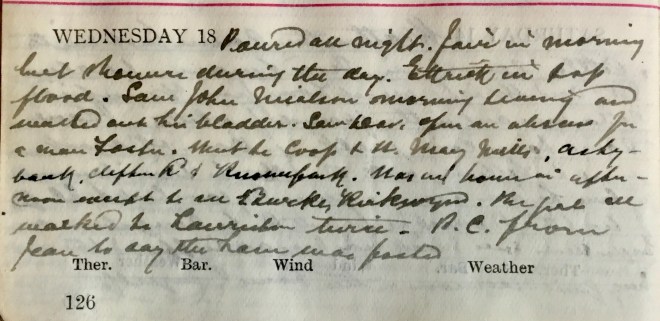 WEDNESDAY 18 Poured all night. Fair in morning
but showers during the day. Ettrick in top
flood. Saw John Nicolson morning evening and
washed out his bladder. Saw open an abscess for
a man Foster. Went to Coop & St. Mary Mills, Ashy-
bank, & Knowepark. Was in house in after-
noon except to see Kirkwynd. all
walked to Lauriston twice. P.C. from
Jean to say the ham was posted
Ther. Bar. Wind Weather
126